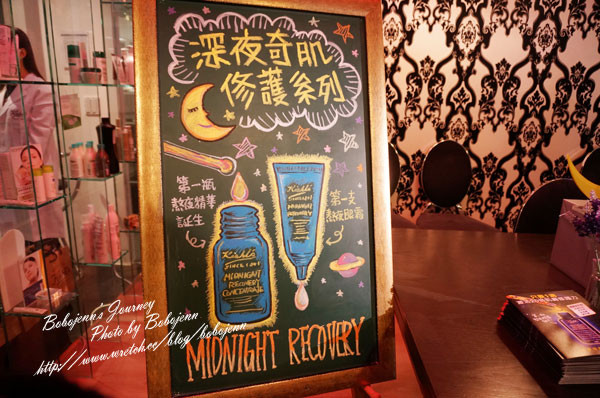 深夜奇肌
修護系列
第一瓶
熬夜精華
誕生
第一支
熬夜眼霜
Kiehl's
SINCE 1851
MIDNIGHT
RECOVERY
CONCENTRATE
Kiehl's
MIDNIGHT
RECOVERY
MIDNIGHT RECOVERY
Bobojenn's Journey
Photo by Bobojenn
http://www.wretch.cc/blog/bobojenn